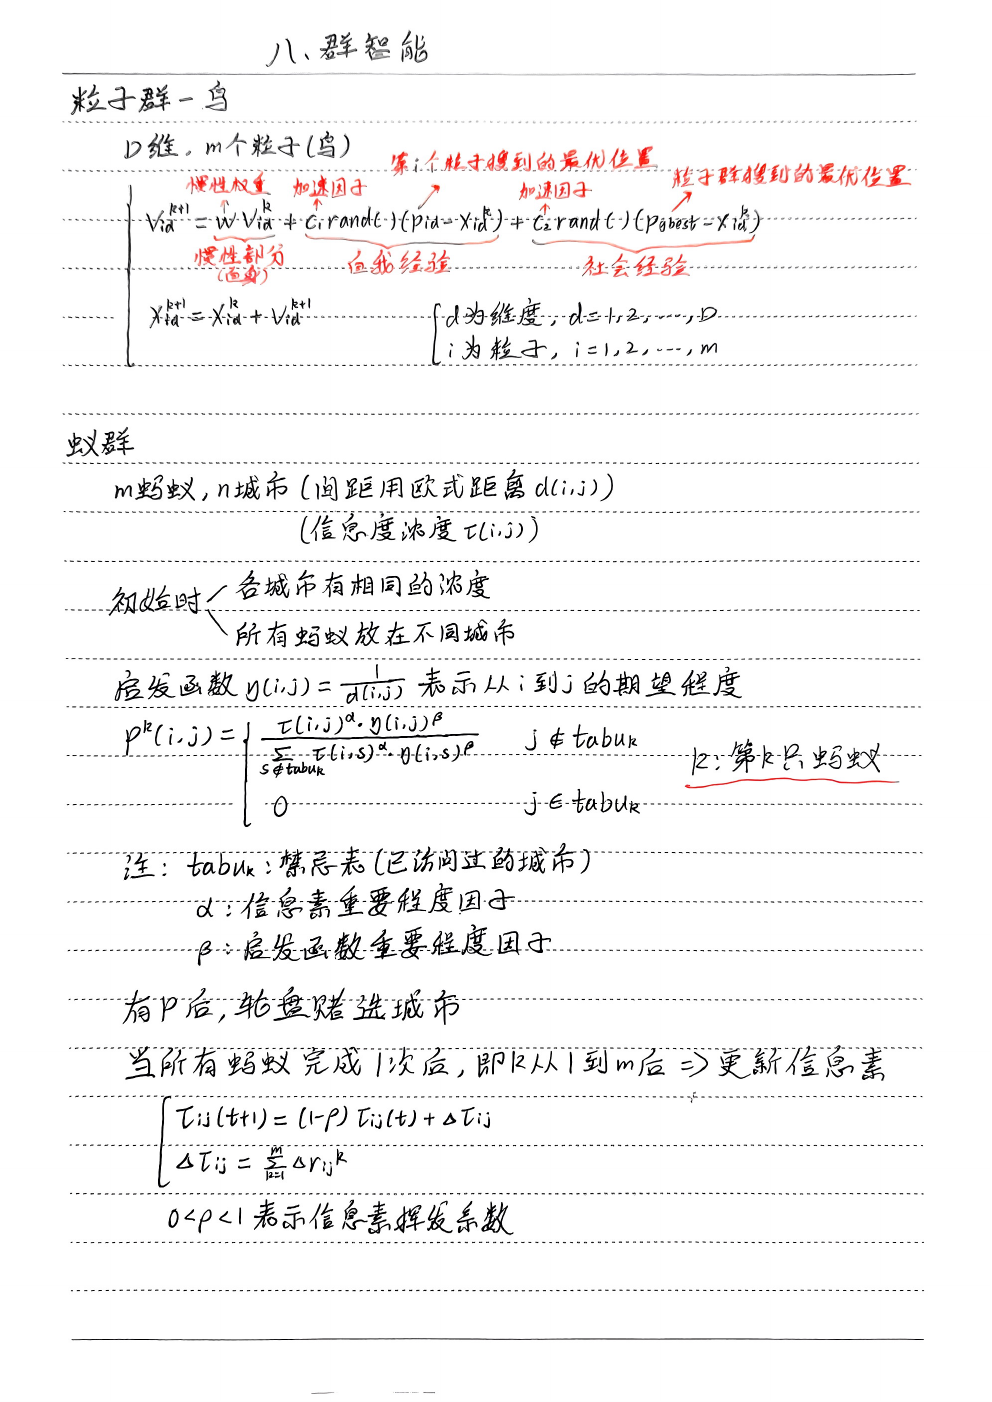 八、群智能
粒子群－鸟
D维，m个粒子(鸟)
第i个粒子搜到的最优位置
惯性权重 加速因子 加速因子 粒子群搜到的最优位置
Vid^k+1 = w Vid^k + c₁rand( )(pid－Xid^k) + c₂rand( )(pgbest－Xid^k)
惯性部分 自我经验 社会经验
Xid^k+1 = Xid^k + Vid^k+1
d为维度，d=1,2,…,D
i为粒子，i=1,2,…,m
蚁群
m蚂蚁，n城市(间距用欧式距离d(i,j))
(信息度浓度τ(i,j))
各城市有相同的浓度
初始时
所有蚂蚁放在不同城市
启发函数 η(i,j) = 1/d(i,j) 表示从i到j的期望程度
p^k(i,j) = { τ(i,j)^α·η(i,j)^β / Σ_{s∉tabuk} τ(i,s)^α·η(i,s)^β j∉tabuk
k：第k只蚂蚁
0 j∈tabuk
注：tabuk：禁忌表(已访问过的城市)
α：信息素重要程度因子
β：启发函数重要程度因子
有P后，轮盘赌选城市
当所有蚂蚁完成1次后，即k从1到m后 => 更新信息素
τij(t+1) = (1-ρ)τij(t) + Δτij
Δτij = Σ_{k=1}^m Δrij^k
0<ρ<1表示信息素挥发系数